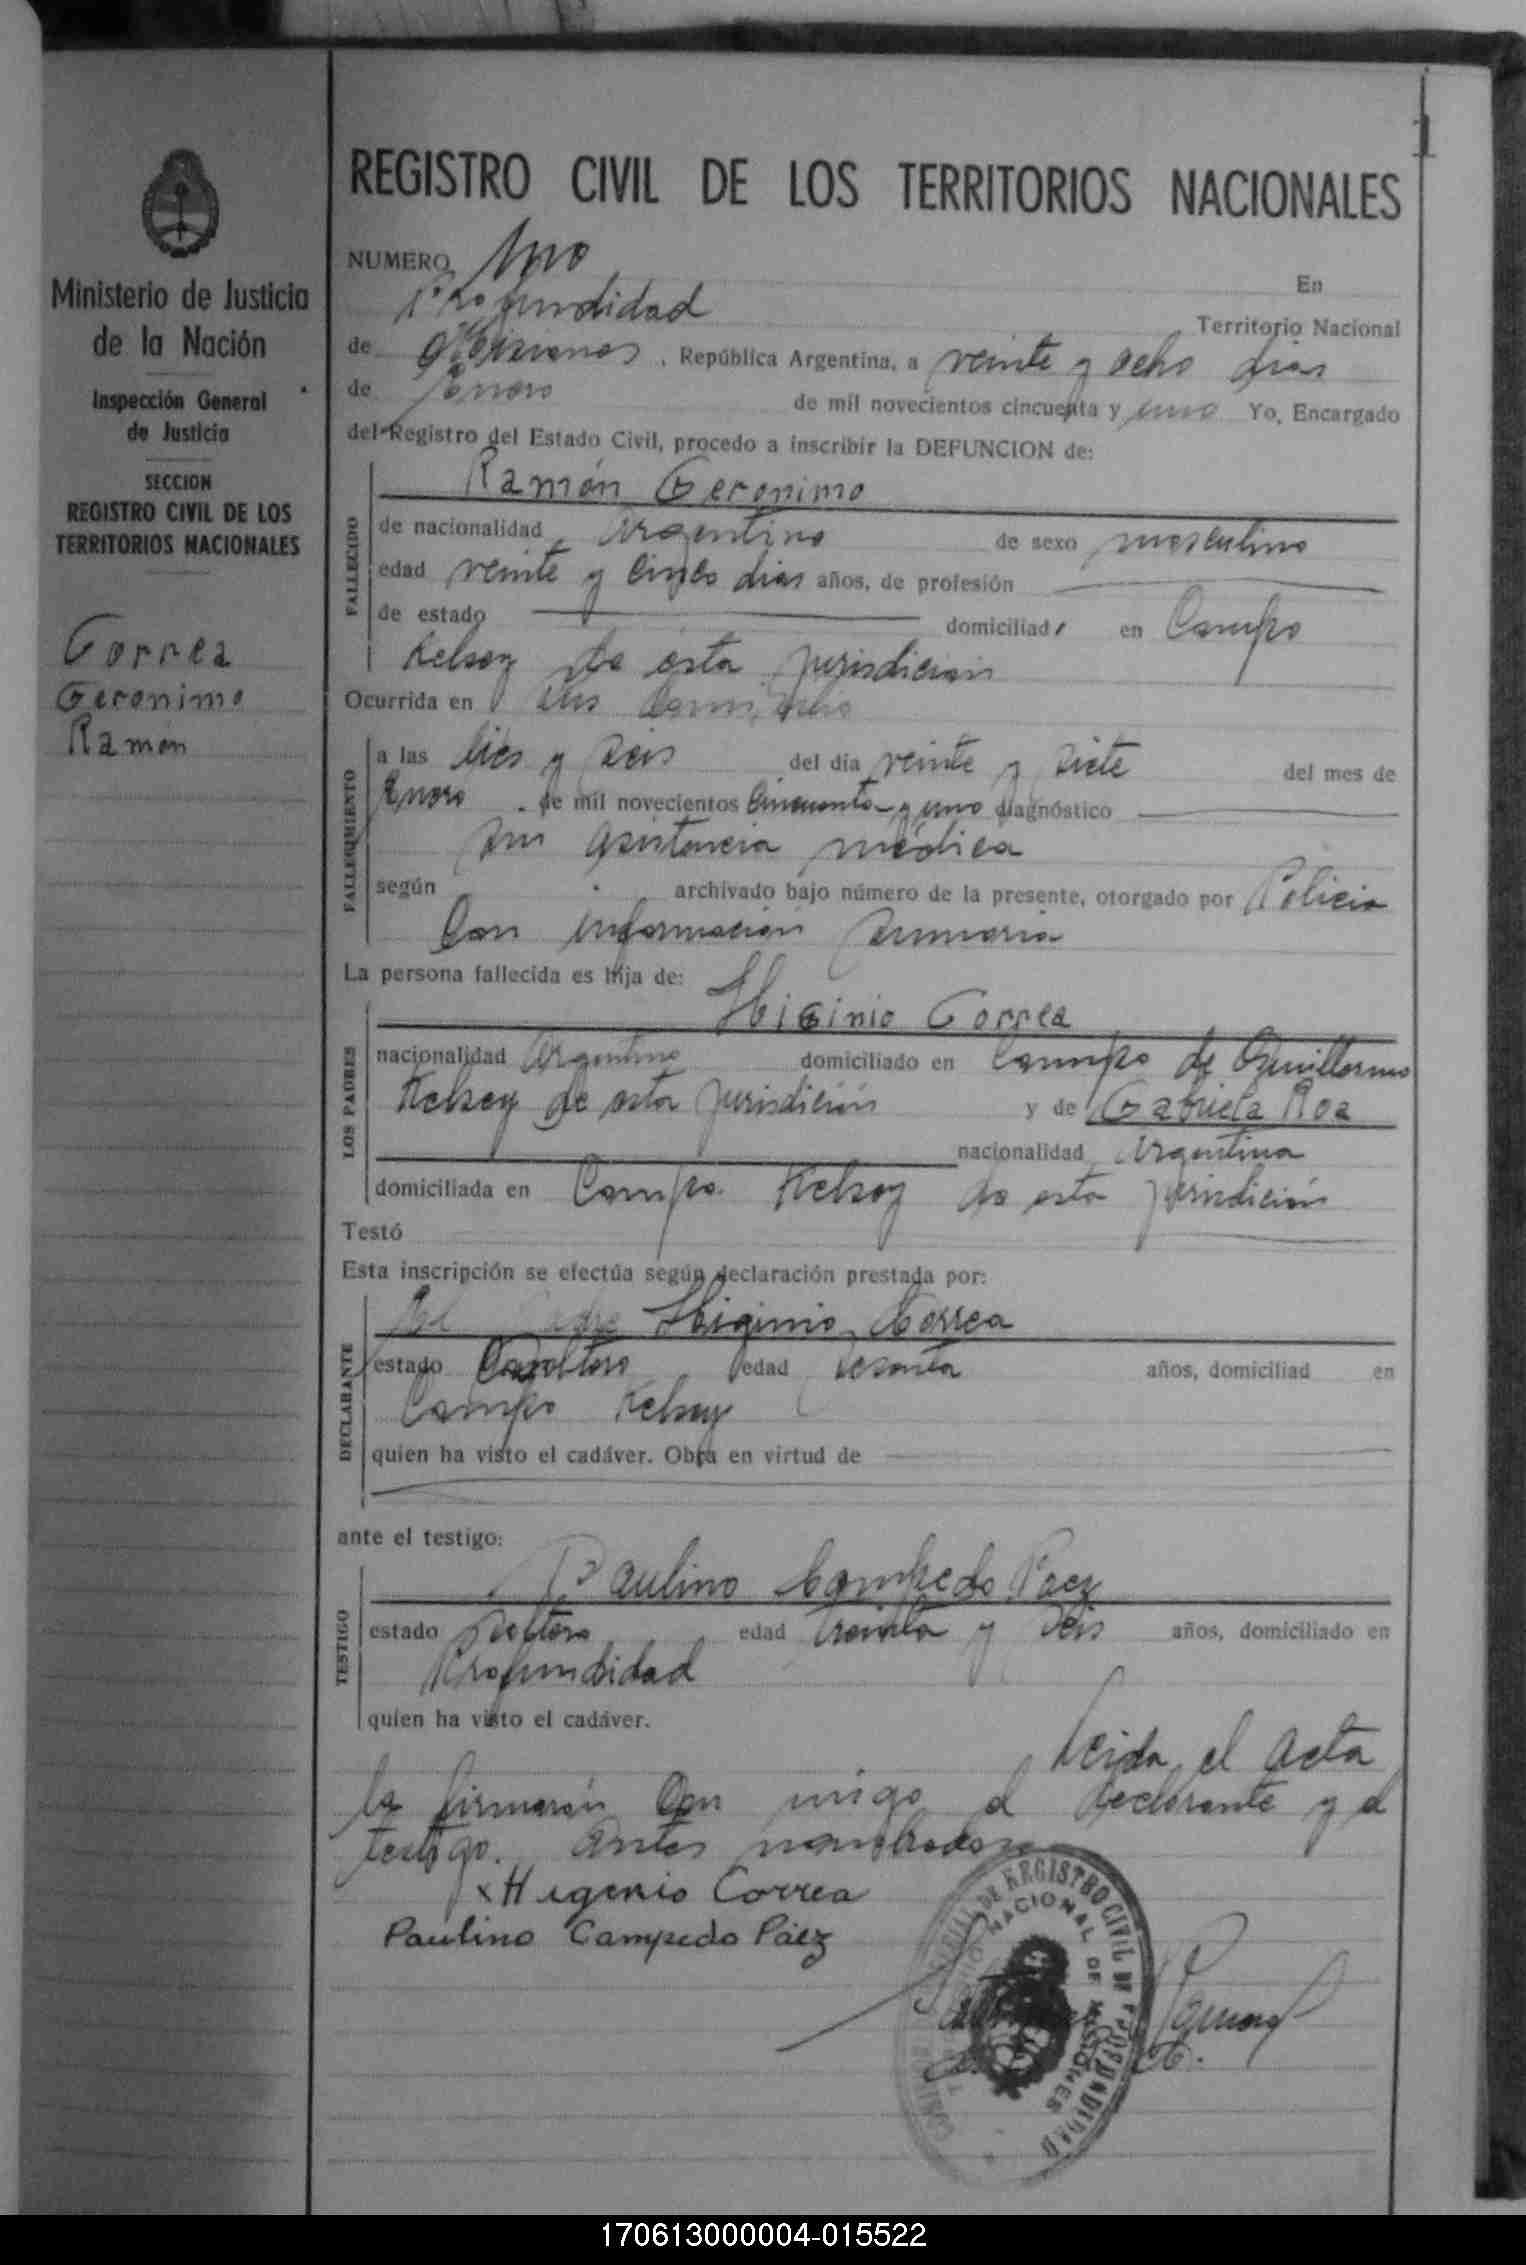 1
Ministerio de Justicia
de la Nación
Inspección General
de Justicia
SECCION
REGISTRO CIVIL DE LOS
TERRITORIOS NACIONALES
Correa
Geronimo
Ramón
REGISTRO CIVIL DE LOS TERRITORIOS NACIONALES
NUMERO Uno
En
Profundidad Territorio Nacional
de Misiones, República Argentina, a veinte y ocho dias
de Enero de mil novecientos cincuenta y uno Yo, Encargado
del Registro del Estado Civil, procedo a inscribir la DEFUNCION de:
Ramón Geronimo
FALLECIDO
de nacionalidad Argentino de sexo masculino
edad veinte y cinco dias años, de profesión
de estado domiciliad en Campo
Kelsey de esta jurisdicion
Ocurrida en sus domicilio
FALLECIMIENTO
a las dies y seis del día veinte y siete del mes de
Enero de mil novecientos cincuenta y uno diagnóstico
sin asistencia médica
según archivado bajo número de la presente, otorgado por Policia
Con información sumaria
La persona fallecida es hija de:
Higinio Correa
LOS PADRES
nacionalidad Argentino domiciliado en Campo de Guillermo
Kelsey de esta jurisdición y de Gabriela Roa
nacionalidad Argentina
domiciliada en Campo Kelsey de esta jurisdición
Testó
Esta inscripción se efectúa según declaración prestada por:
El Padre Higinio Correa
DECLARANTE
estado soltero edad sesenta años, domiciliad en
Campo Kelsey
quien ha visto el cadáver. Obra en virtud de
ante el testigo:
Paulino Campedo Paez
TESTIGO
estado soltero edad treinta y seis años, domiciliado en
Profundidad
quien ha visto el cadáver.
Leida el acta
la firmarón con migo el declarante y el
testigo. antes nombrados
x Higenio Correa
Paulino Campedo Páez
DE REGISTRO CIVIL DE PROFUNDIDAD
NACIONAL DE MISIONES
170613000004-015522